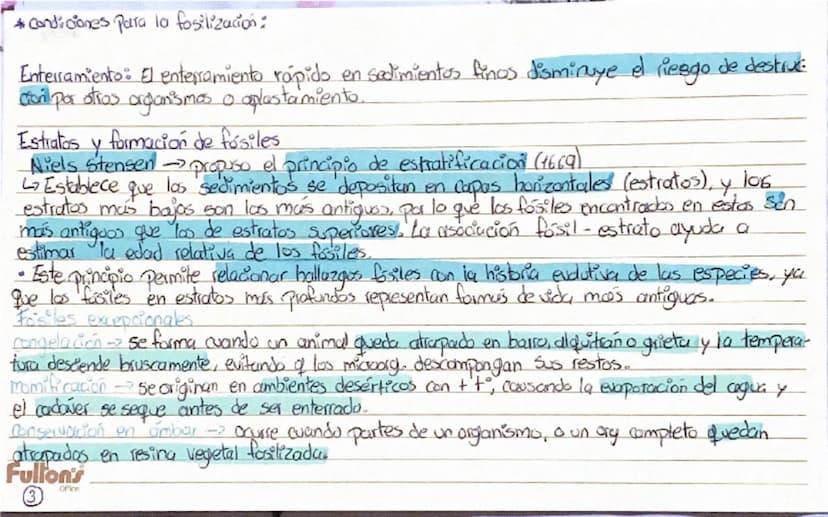 * Condiciones para la fosilización:
Enterramiento: El enterramiento rápido en sedimentos finos disminuye el riesgo de destruc-
ción por otros organismos o aplastamiento.
Estratos y formación de fósiles
Niels Stensen → propuso el principio de estratificación (1669)
↳ Establece que los sedimientos se depositan en capas horizontales (estratos), y los
estratos mas bajos son los más antiguos, por lo que los fósiles encontrados en estos son
más antiguos que los de estratos superiores. La asociación fósil - estrato ayuda a
estimar la edad relativa de los fósiles.
• Este principio permite relacionar hallazgos fósiles con la historia evolutiva de las especies, ya
que los fósiles en estratos más profundos representan formas de vida más antiguas.
Fósiles excepcionales
congelación → se forma cuando un animal queda atrapado en barro, alquitrán o grieta y la tempera-
tura desciende bruscamente, evitando q los microorg. descompongan sus restos.
momificación → se originan en ambientes desérticos con + t°, causando la evaporación del agua y
el cadáver se seque antes de ser enterrado.
conservación en ámbar → ocurre cuando partes de un organismo, o un org completo quedan
atrapados en resina vegetal fosilizada.
Fulton's
Office
3